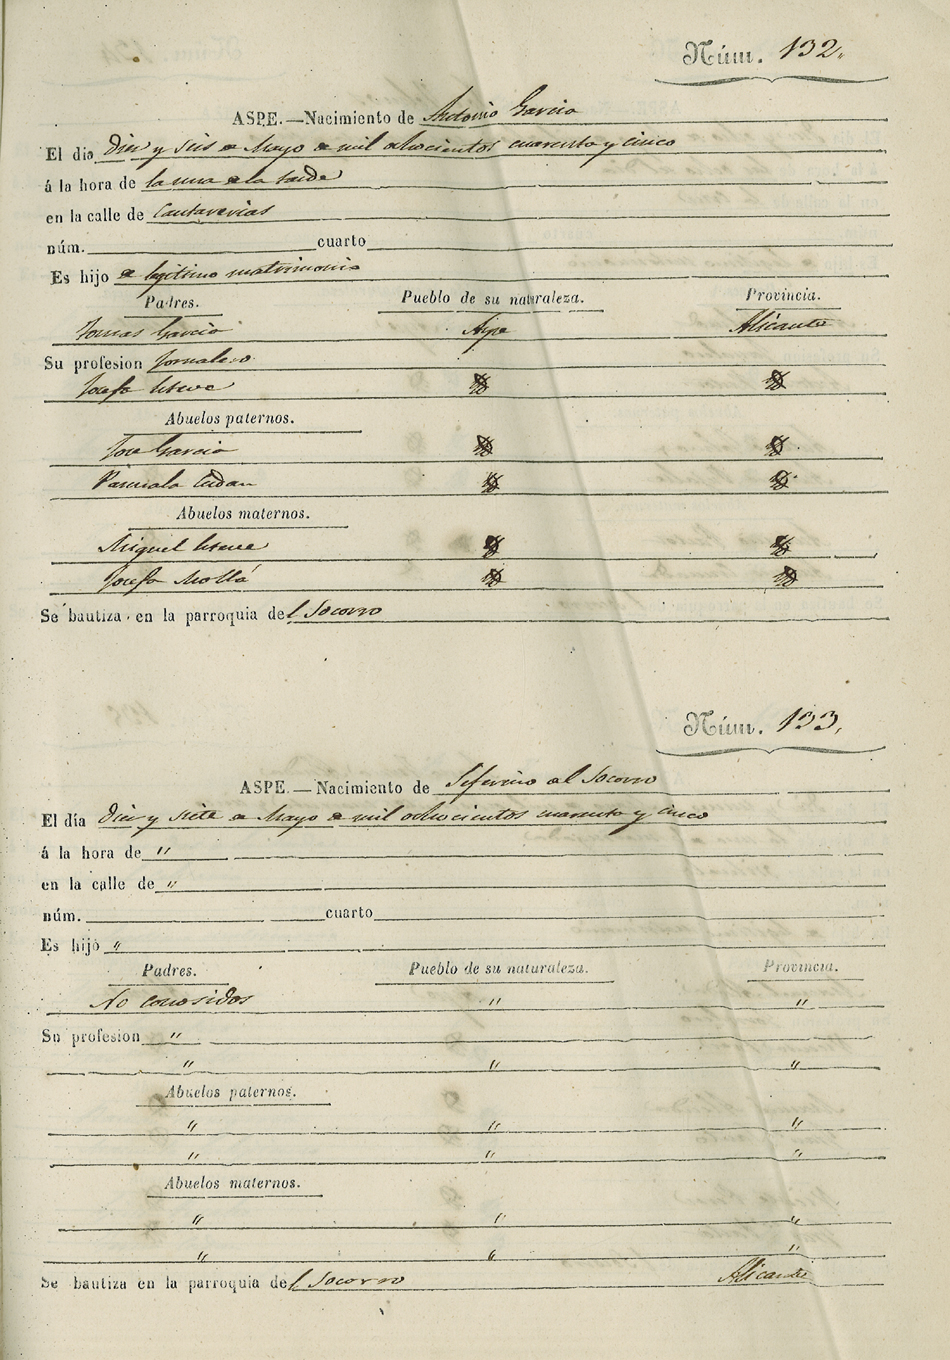 Núm. 132.
ASPE.—Nacimiento de Antonio Garcia
El dia Diez y seis de Mayo de mil ochocientos cuarenta y cinco
á la hora de la una de la tarde
en la calle de Cantarerias
núm. cuarto
Es hijo de legitimo matrimonio
Padres. Pueblo de su naturaleza. Provincia.
Tomas Garcia Aspe Alicante
Su profesion Jornalero
Josefa
Abuelos paternos.
Jose Garcia
Pascuala
Abuelos maternos.
Miguel
Josefa Mollá
Se bautiza en la parroquia del Socorro
Núm. 133.
ASPE.—Nacimiento de Seferino del Socorro
El día Diez y siete de Mayo de mil ochocientos cuarenta y cinco
á la hora de "
en la calle de "
núm. cuarto
Es hijo "
Padres. Pueblo de su naturaleza. Provincia.
No conosidos " "
Su profesion "
" " "
Abuelos paternos.
" " "
" " "
Abuelos maternos.
" " "
" " "
Se bautiza en la parroquia del Socorro Alicante